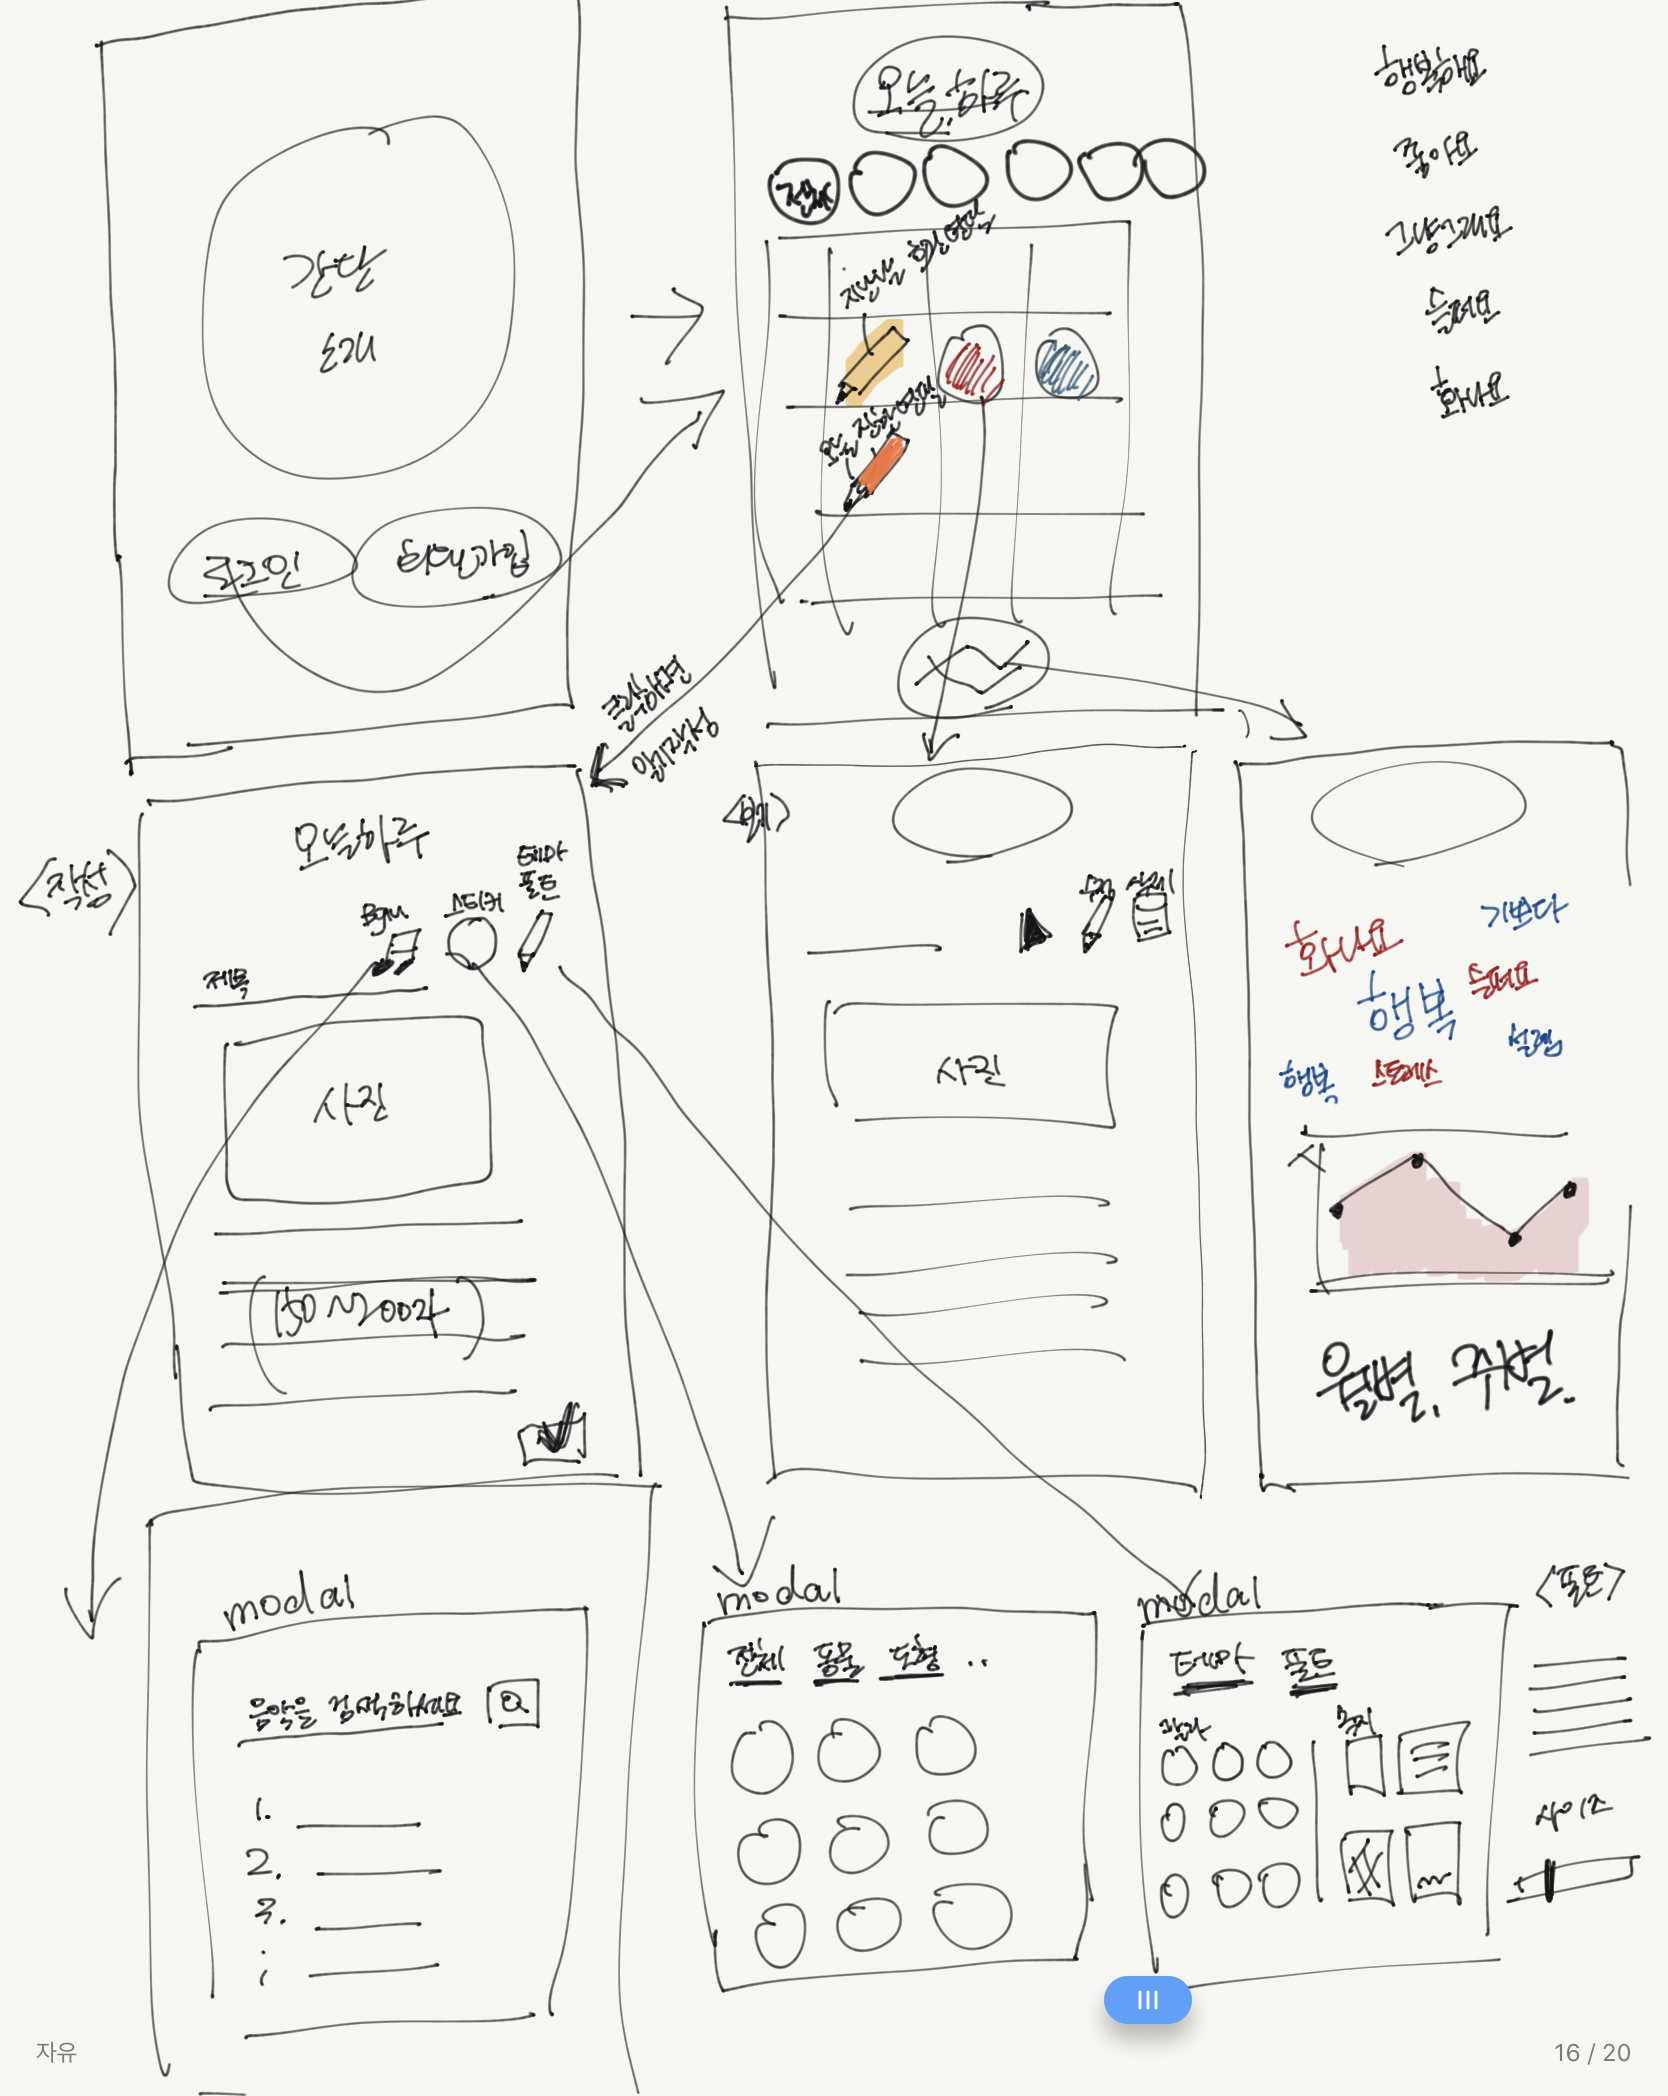 간단
소개
로그인
회원가입
오늘 하루
전체
지난날 흰연필
오늘 진한연필
클릭하면
일기작성
행복해요
좋아요
그냥그래요
슬퍼요
화나요
<작성>
오늘하루
Bgm
스티커
테마
폰트
제목
사진
(150~200자)
<보기>
수정
삭제
사진
화나요
기쁘다
행복
슬퍼요
설렘
행복
스트레스
월별, 주별.
modal
음악을 검색하세요
1.
2.
3.
modal
전체 동물 도형 ..
modal
테마 폰트
컬러
속지
<폰트>
사이즈
자유
16 / 20